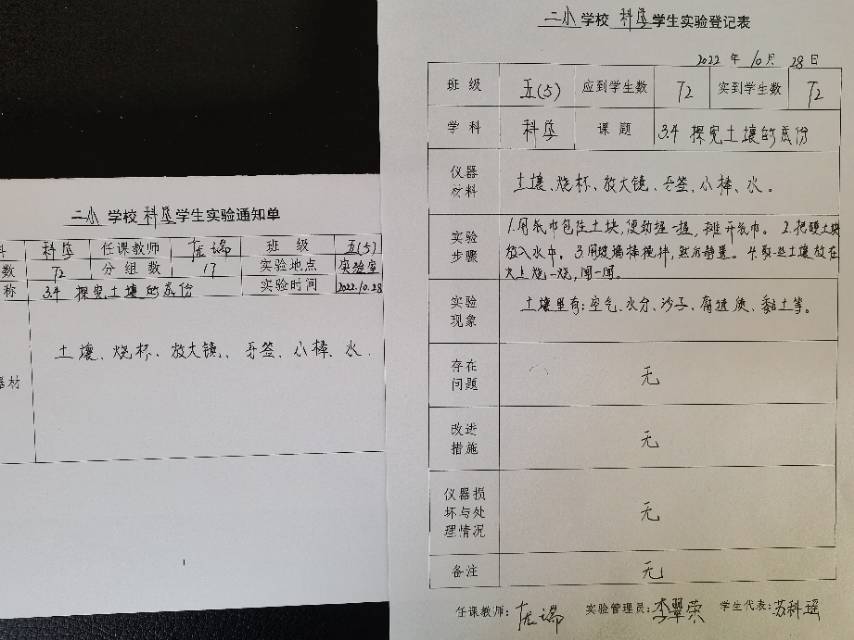 二小学校科学学生实验通知单
科 科学 任课教师 班级 五(5)
数 72 分组数 17 实验地点 实验室
称 3.4 探究土壤的成份 实验时间 2022.10.28
器材 土壤、烧杯、放大镜、牙签、小棒、水.
二小学校科学学生实验登记表
2022年10月28日
班级 五(5) 应到学生数 72 实到学生数 72
学科 科学 课题 3.4 探究土壤的成份
仪器
材料
土壤、烧杯、放大镜、牙签、小棒、水。
实验
步骤
1.用纸巾包住土块,使劲捏一捏,摊开纸巾。2.把硬土块
放入水中。3.用玻璃棒搅拌,然后静置。4.取一些土壤放在
火上烧一烧,闻一闻。
实验
现象
土壤里有:空气、水分、沙子、腐殖质、黏土等。
存在
问题
无
改进
措施
无
仪器损
坏与处
理情况
无
备注 无
任课教师: 实验管理员:李翠荣 学生代表:苏科瑶